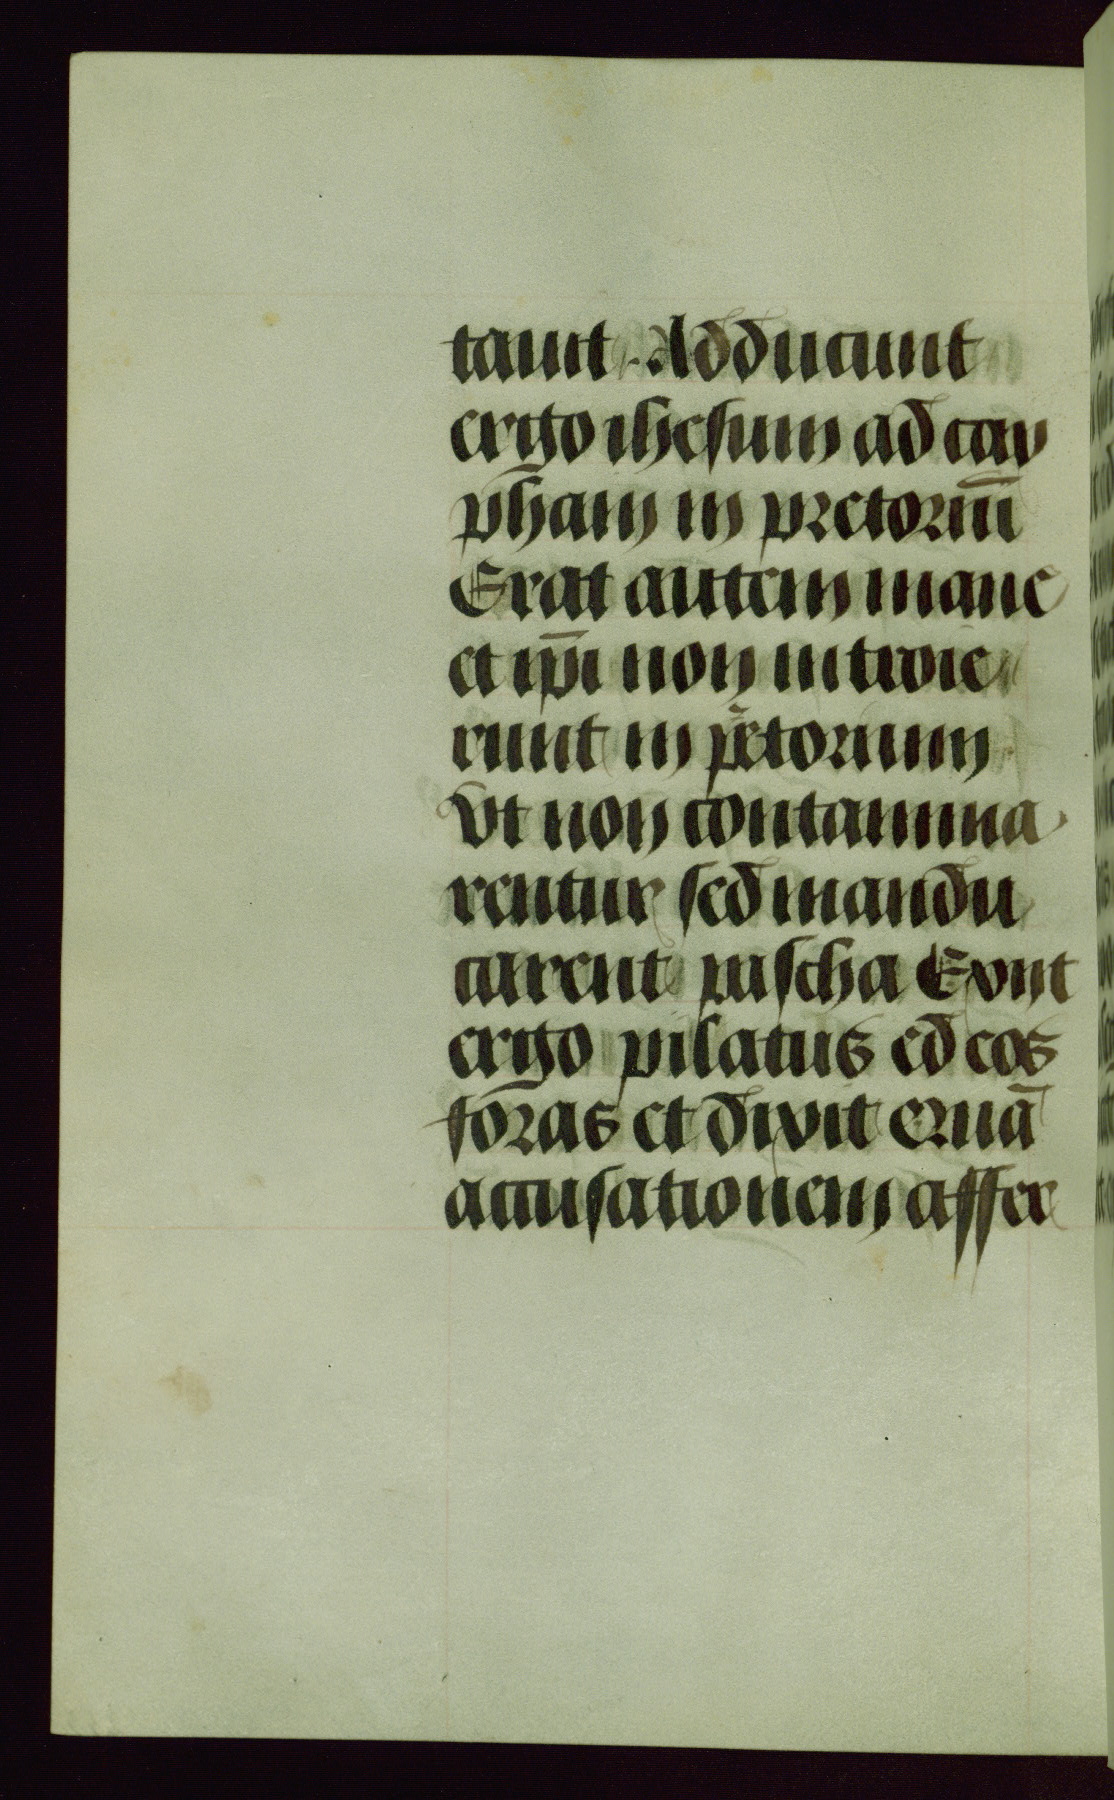 tauit. Adducunt
ergo ihesum ad cay
pham in pretoriū
Erat autem mane
et ip̄i non introie
runt in p̄torium
Vt non contamina
rentur sed mandu
carent pascha Exyt
ergo pilatus ed eos
foras et dixit Quā
accusationem affer